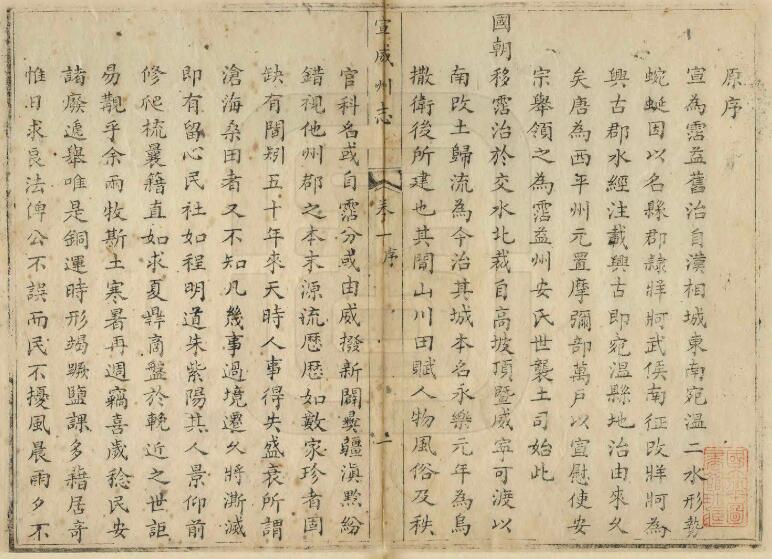 原序
宣為霑益舊治自漢相城東南宛温二水形勢
蜿蜒因以名縣郡隷牂牁武侯南征改牂牁為
興古郡水經注載興古即宛温縣地治由來久
矣唐為西平州元置摩彌部萬戶以宣慰使安
宗舉領之為霑益州安氏世襲土司始此
國朝移霑治於交水北裁自高坡頂暨威寧可渡以
南改土歸流為今治其城本名永樂元年為烏
撒衛後所建也其間山川田賦人物風俗及秩
宣威州志
卷一序
一
官科名或自霑分或由威撥新闢彝疆滇黔紛
錯視他州郡之本末源流歴歴如數家珍者固
缺有間矧五十年來天時人事得失盛衰所謂
滄海桑田者又不知凡幾事過境遷久將澌滅
即有留心民社如程明道朱紫陽其人景仰前
修爬梳曩籍直如求夏鼎商盤於輓近之世詎
易觀乎余雨牧斯土寒暑再週竊喜歲稔民安
諸廢遞舉唯是銅運時形竭蹶鹽課多藉居奇
惟日求良法俾公不誤而民不擾風晨雨夕不